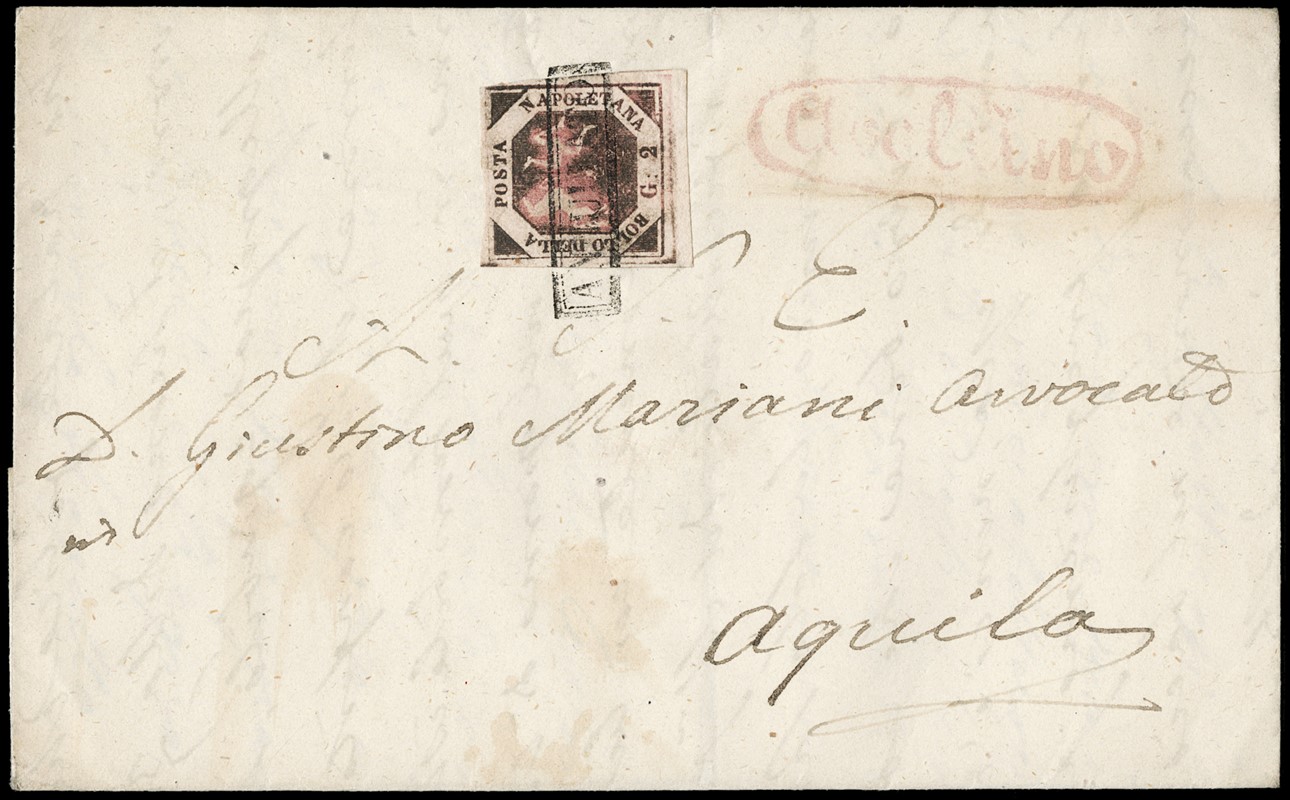 BOLLO DELLA POSTA NAPOLETANA G: 2
ANNULLATO
Avellino
A. S. E.
D. Giustino Mariani Avvocato
in
Aquila